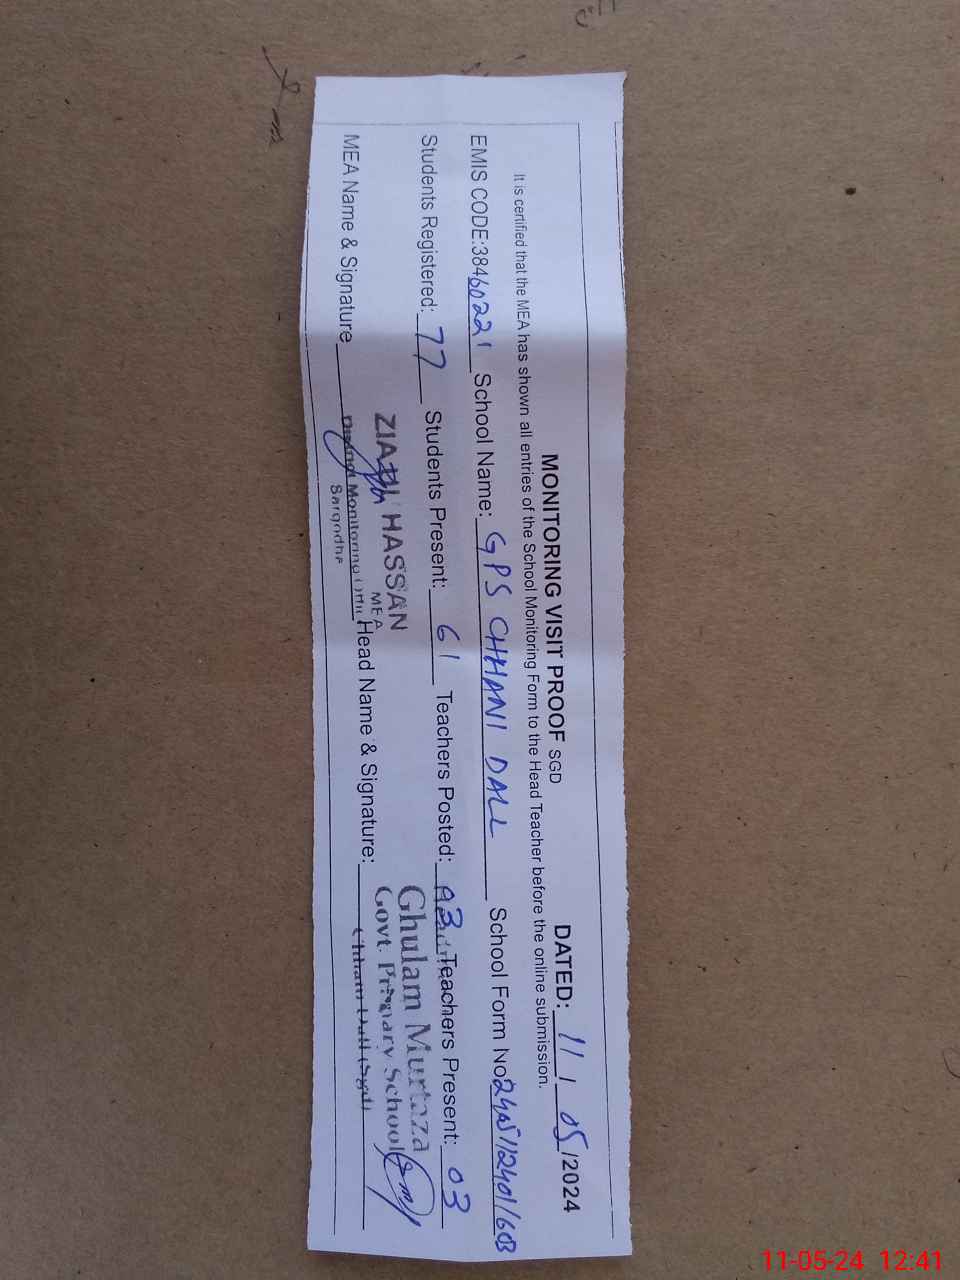 MONITORING VISIT PROOF SGD DATED: 11 / 05 /2024
It is certified that the MEA has shown all entries of the School Monitoring Form to the Head Teacher before the online submission.
EMIS CODE:38460221 School Name: GPS CHHANI DALL School Form No
Students Registered: 77 Students Present: 61 Teachers Posted: 03 Teachers Present: 03
ZIA UL HASSAN
MEA
Ghulam Murtaza
Govt. Primary School
MEA Name & Signature District Monitoring Head Name & Signature:
Sargodha
11-05-24 12:41